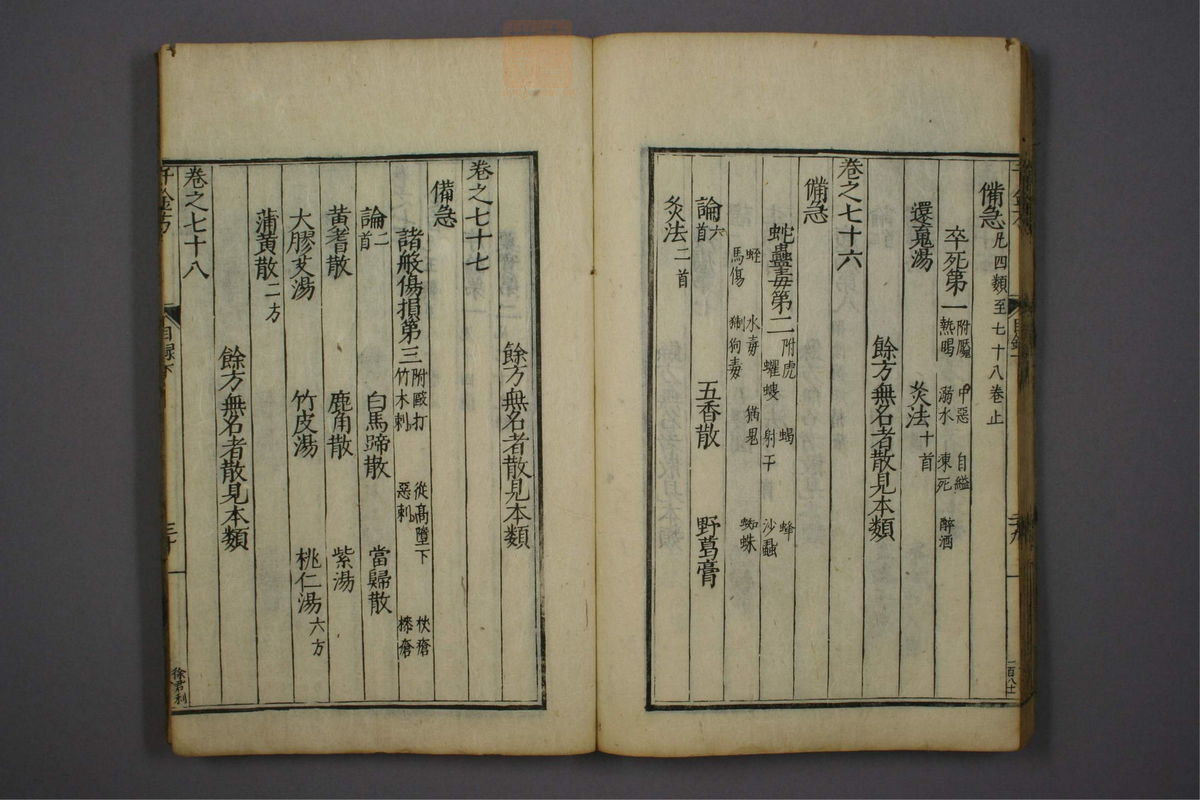 備急凡四類至七十八卷止
卒死第一附魘 中惡 自縊 熱暍 溺水 凍死 醉酒
還䰟湯 灸法十首
餘方無名者散見本類
卷之七十六
備急
蛇蠱毒第二附虎 蝎 蜂 蠷螋 射干 沙蝨
蛭 水毒 猫鬼 蜘蛛 馬傷 猘狗毒
論六首 五香散 野葛膏
灸法二首
餘方無名者散見本類
卷之七十七
備急
諸般傷損第三附毆打 從高墮下 杖瘡 竹木刺 惡刺 㯶瘡
論二首 白馬蹄散 當歸散
黃耆散 鹿角散 紫湯
大膠艾湯 竹皮湯 桃仁湯六方
蒲黃散二方
餘方無名者散見本類
卷之七十八
千金方 目錄下 三十
徐君利